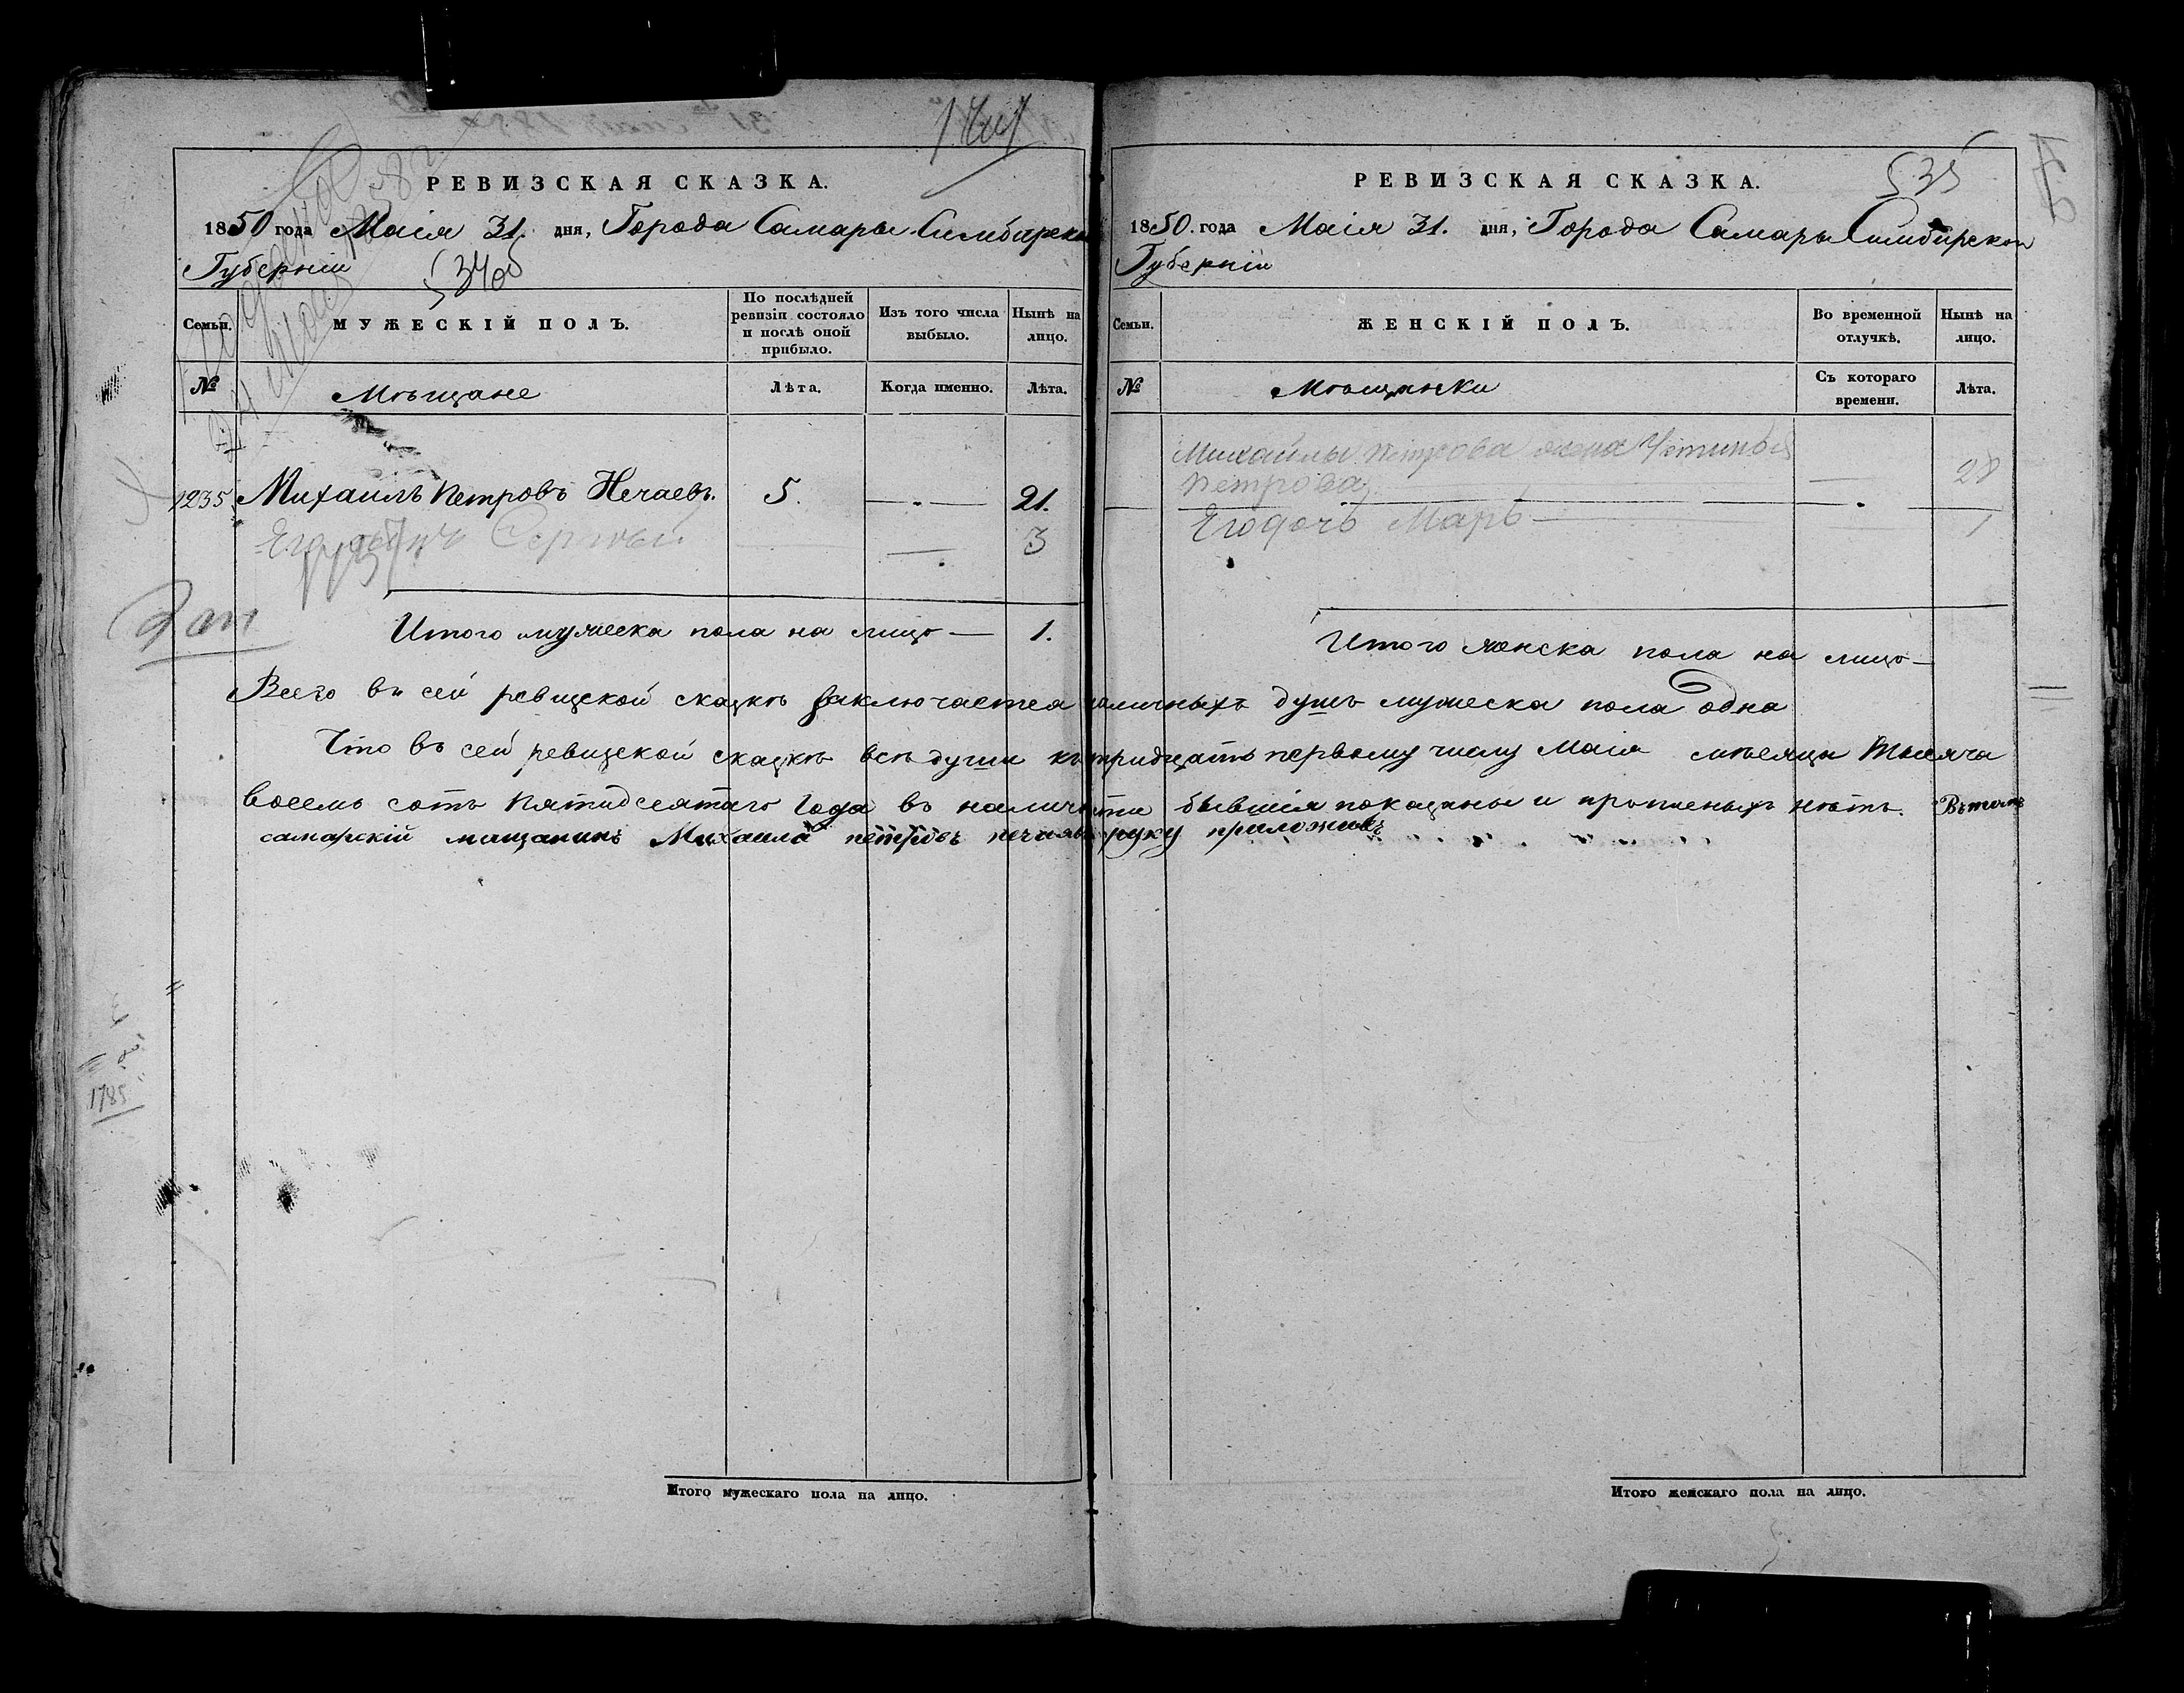 РЕВИЗСКАЯ СКАЗКА.
1850 года Маія 31. дня, Города Самары Симбирской
Губерніи
Семьи.
МУЖЕСКІЙ ПОЛЪ.
По послѣдней
ревизіи состояло
и послѣ оной
прибыло.
Изъ того числа
выбыло.
Нынѣ на
лицо.
№
Мѣщане
Лѣта.
Когда именно.
Лѣта.
1235 Михаилъ Петровъ Нечаевъ. 5. — 21.
Сергѣй 3
Итого мужеска пола на лицо — 1.
1785
Итого мужескаго пола на лицо.
РЕВИЗСКАЯ СКАЗКА.
535
1850. года Маія 31. дня, Города Самары Симбирской
Губерніи
Семьи.
ЖЕНСКІЙ ПОЛЪ.
Во временной
отлучкѣ.
Нынѣ на
лицо.
№
Мѣщанки
Съ котораго
времени.
Лѣта.
Михайлы Петрова жена Устинья
Петрова 28
Его дочь Марь 1
Итого женска пола на лицо —
Всего въ сей ревизской сказкѣ заключается наличныхъ душъ мужеска пола одна
Что въ сей ревизской сказкѣ всѣ души къ тридцать первому числу Маія мѣсяца тысяча
восемь сотъ пятидесятаго года въ наличности бывшія показаны и прописныхъ нѣтъ. Въ томъ
самарскій мищанинъ Михаила петровъ нечаявъ руку приложивъ
Итого женскаго пола на лицо.